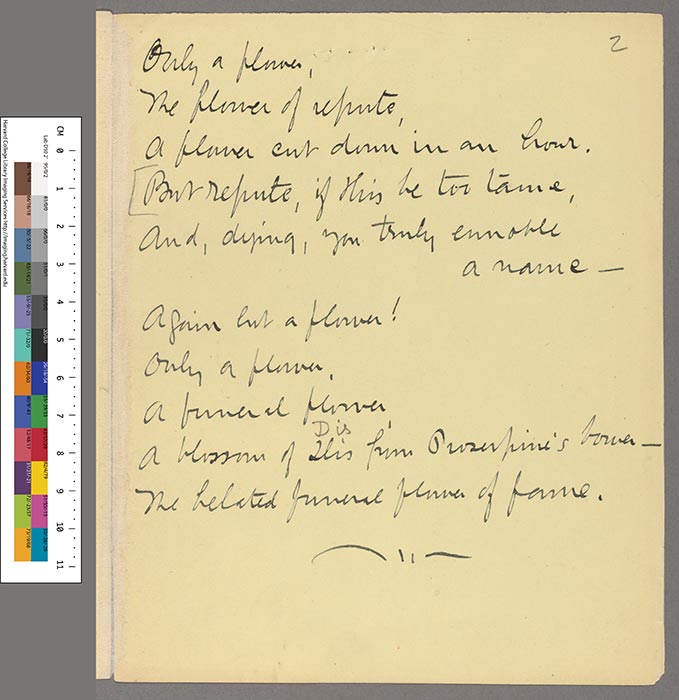 2
Only a flower,
The flower of repute,
A flower cut down in an hour.
[But repute, if this be too tame,
And, dying, you truly ennoble
a name —
Again but a flower!
Only a flower,
A funeral flower,
Dis
A blossom of Dis from Proserpine's bower —
The belated funeral flower of fame.
CM 0 1 2 3 4 5 6 7 8 9 10 11
Harvard College Library Imaging Services http://imaging.harvard.edu